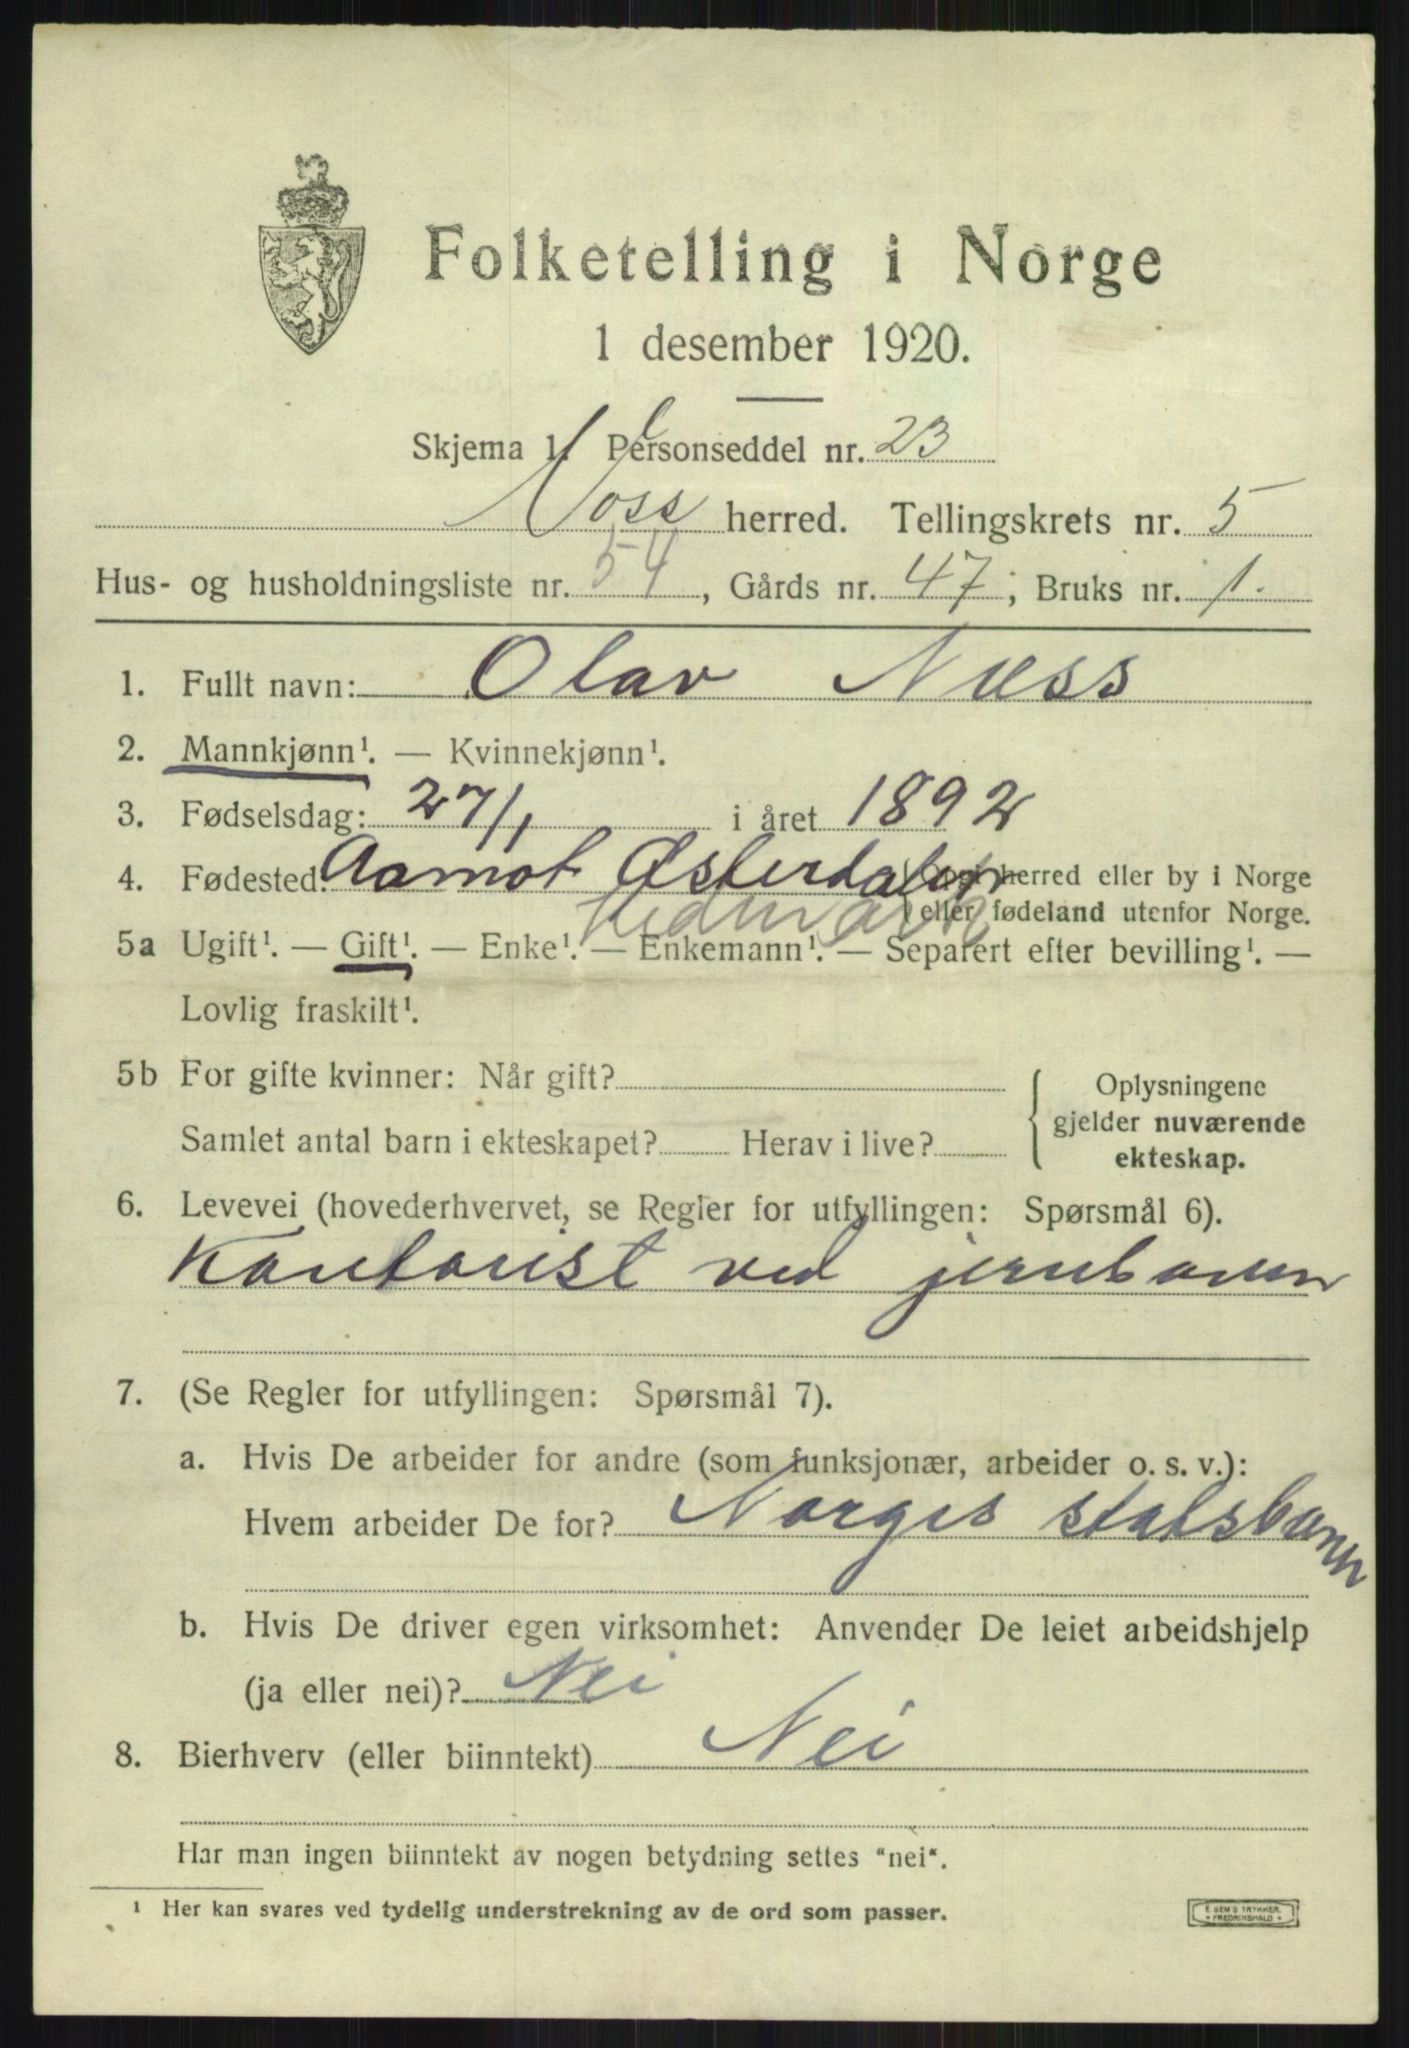 Folketelling i Norge
1 desember 1920.
Skjema 1. Personseddel nr. 23
Voss herred. Tellingskrets nr. 5
Hus- og husholdningsliste nr. 54, Gårds nr. 47; Bruks nr. 1.
1. Fullt navn: Olav Næss
2. Mannkjønn¹. — Kvinnekjønn¹.
3. Fødselsdag: 27/1 i året 1892
4. Fødested: Aamot Østerdalen (Opgi herred eller by i Norge
Hedmark eller fødeland utenfor Norge.
5a Ugift¹. — Gift¹. — Enke¹. — Enkemann¹. — Separert efter bevilling¹. —
Lovlig fraskilt¹.
5b For gifte kvinner: Når gift?
Samlet antal barn i ekteskapet? Herav i live?
Oplysningene
gjelder nuværende
ekteskap.
6. Levevei (hovederhvervet, se Regler for utfyllingen: Spørsmål 6).
Kontorist ved jernbanen
7. (Se Regler for utfyllingen: Spørsmål 7).
a. Hvis De arbeider for andre (som funksjonær, arbeider o. s. v.):
Hvem arbeider De for? Norges statsbaner
b. Hvis De driver egen virksomhet: Anvender De leiet arbeidshjelp
(ja eller nei)? Nei
8. Bierhverv (eller biinntekt) Nei
Har man ingen biinntekt av nogen betydning settes "nei".
¹ Her kan svares ved tydelig understrekning av de ord som passer.
E. SEM'S TRYKKERI
FREDRIKSHALD